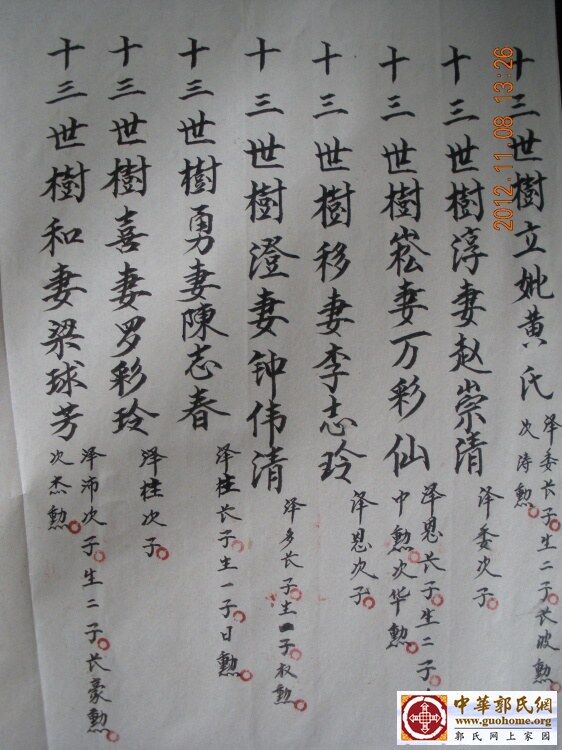 十三世樹立妣黄氏
泽委长子生二子长波勲
次涛勲
十三世樹淳妻赵崇清
泽委次子
十三世樹崧妻万彩仙
泽恩长子生二子
中勲次华勲
十三世樹移妻李志玲
泽恩次子
十三世樹澄妻钟伟清
泽多长子生一子权勲
十三世樹勇妻陳志春
泽柱长子生一子日勲
十三世樹喜妻罗彩玲
泽柱次子
十三世樹和妻梁球芳
泽沛次子生二子长豪勲
次杰勲
2012.11.08 13:26
中華郭氏網
www.guohome.org
郭氏网上家园